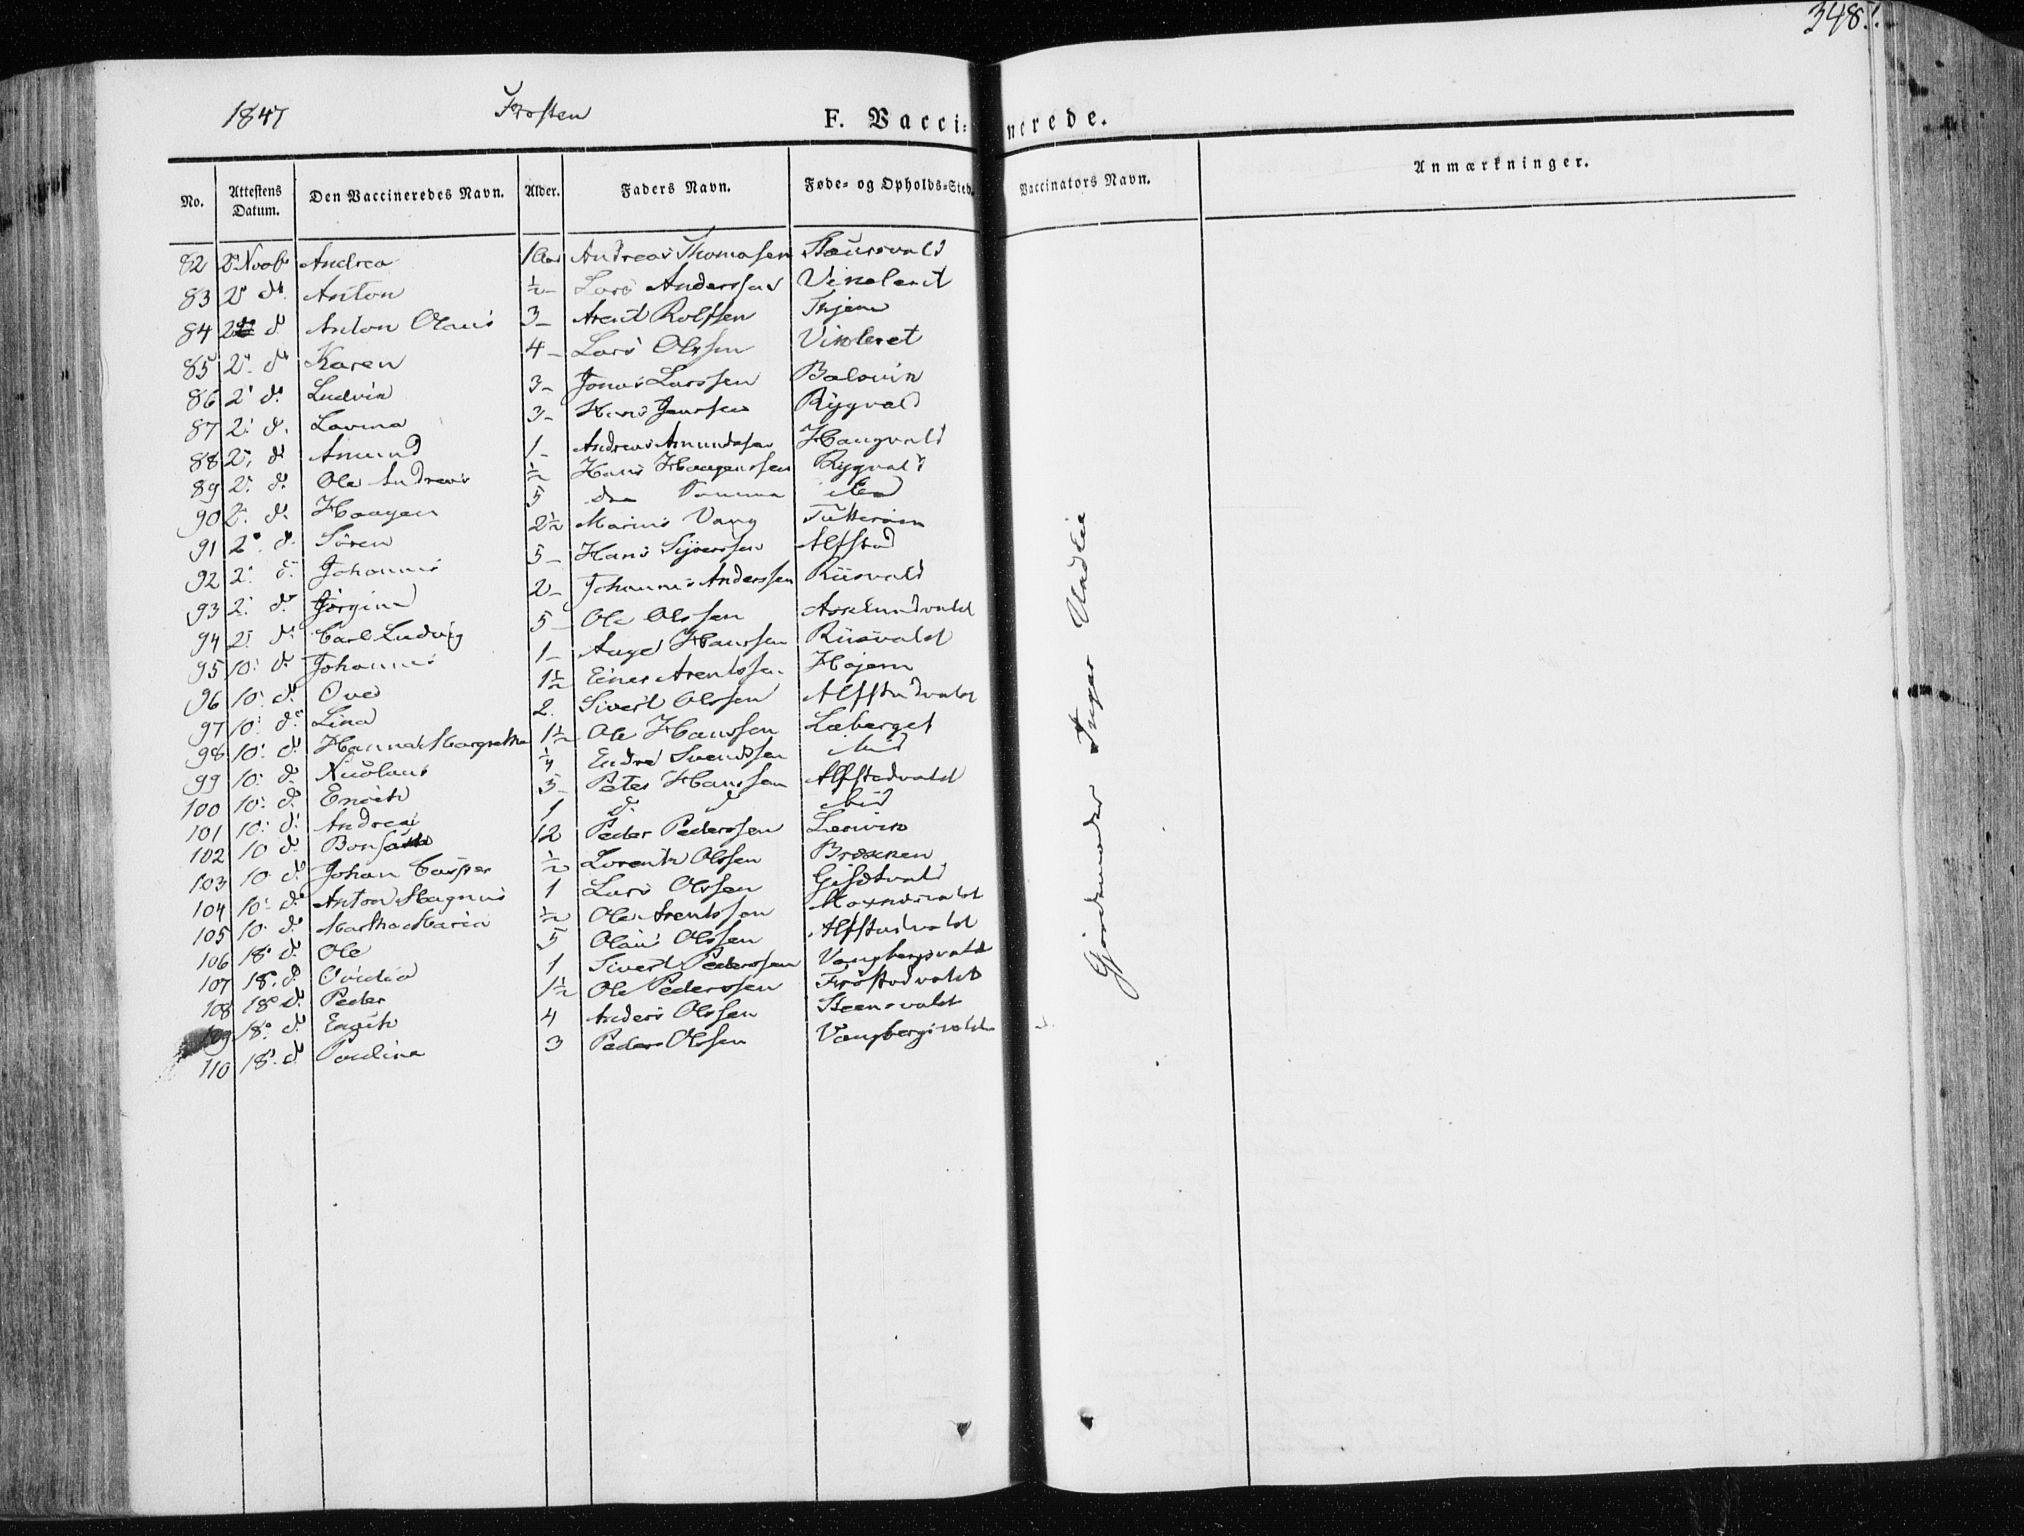 348.
1847 Frosten F. Vaccinerede.
No. Attestens Datum. Den Vaccineredes Navn. Alder. Faders Navn. Føde- og Opholds-Sted. Vaccinators Navn. Anmærkninger.
82 2 Novb Andrea 1 Aar Andreas Thomasen
83 2 d. Anton ½ Lars Anderssen
84 2 d Anton Olaus 3 Arent Rolfsen
85 2. d. Karen 4 Lars Olssen Vinleret
86 2 d. Ludvik 3 Jonas Larssen Balsvik
87 2. d. Lovina 3 Hans Janssen Rygvald
88 2. d. Amund 1 Andreas Amundssen Haugvald
89 2. d. Ole Andreas ½ Hans Haagenssen Rygvald
90 2. d. Haagen 5
91 2. d. Sören 2½ Marius Vang Tutterøen
92 2. d. Johannes 5 Hans Sijverssen Alfstad
93 2. d. Jörgine 2 Johannes Anderssen Riisvald
94 2. d. Carl Ludvig 5 Ole Olssen Asklundvald
95 10. d. Johannes 1 Aage Hanssen Riisvald
96 10. d. Ove 1½ Einer Arentssen Hojem
97 10. d. Lina 2. Sivert Olssen Alfstadvald
98 10. d. Hanna Margretha 1½ Ole Hanssen Læberget
99 10. d. Nicolaus ¼ Endre Svendssen
100 10. d. Enoch 3 Peter Hanssen Alfstadvald
101 10. d. Andrea 1 d. d
102 10 d. 12 Peder Pederssen Leirvik
103 10 d. Johan Casper ½ Lorents Olssen
104 10. d. Anton Magnus 1 Lars Olssen
105 10. d. Martha Maria ½ Ole Arentssen
106 18. d. Ole 5 Olaus Olssen Alfstadvald
107 18. d. Ovidia 1 Sivert Pederssen Vangbergsvald
108 18. d. Peder 1½ Ole Pederssen Fröstadvald
109 18. d. Enoch 4 Anders Olssen Steensvald
110 18. d. Paulina 3 Peder Olssen Vangbergsvald
Gjordemoder Inger